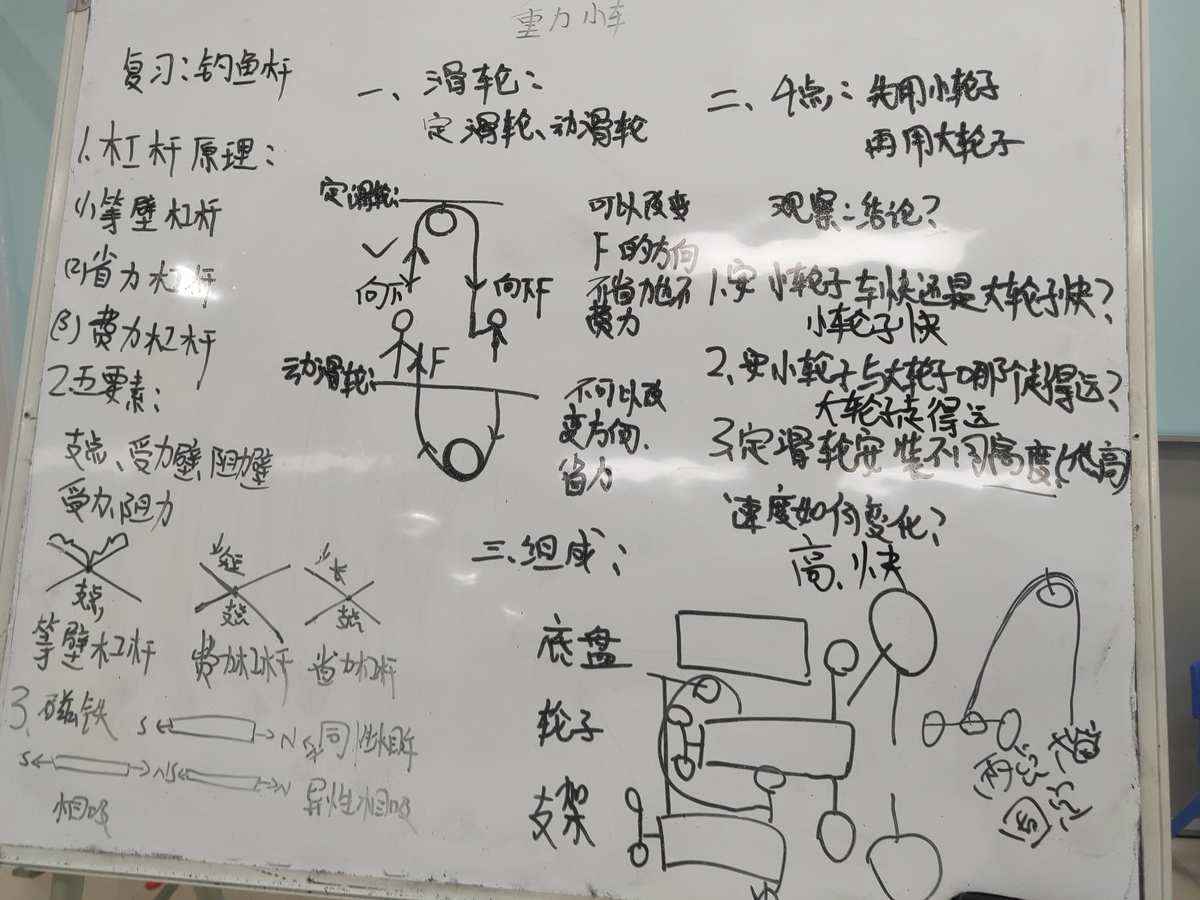 重力小车
复习：钓鱼杆
1.杠杆原理：
(1)等壁杠杆
(2)省力杠杆
(3)费力杠杆
2.五要素：
支点、受力壁、阻力壁
受力、阻力
支点
等壁杠杆
短
支点
费力杠杆
长
支点
省力杠杆
3.磁铁
S N
同性相斥
S N S N
相吸
异性相吸
一、滑轮：
定滑轮、动滑轮
定滑轮：
向下
向下F
可以改变
F的方向
不省力也不
费力
动滑轮：
F
不可以改
变方向.
省力
二、4点：先用小轮子
再用大轮子
观察：结论？
1.安小轮子车快还是大轮子快？
小轮子快
2.安小轮子与大轮子哪个走得远？
大轮子走得远
3.定滑轮安装不同高度(低高)
速度如何变化？
高、快
三.组成：
底盘
轮子
支架